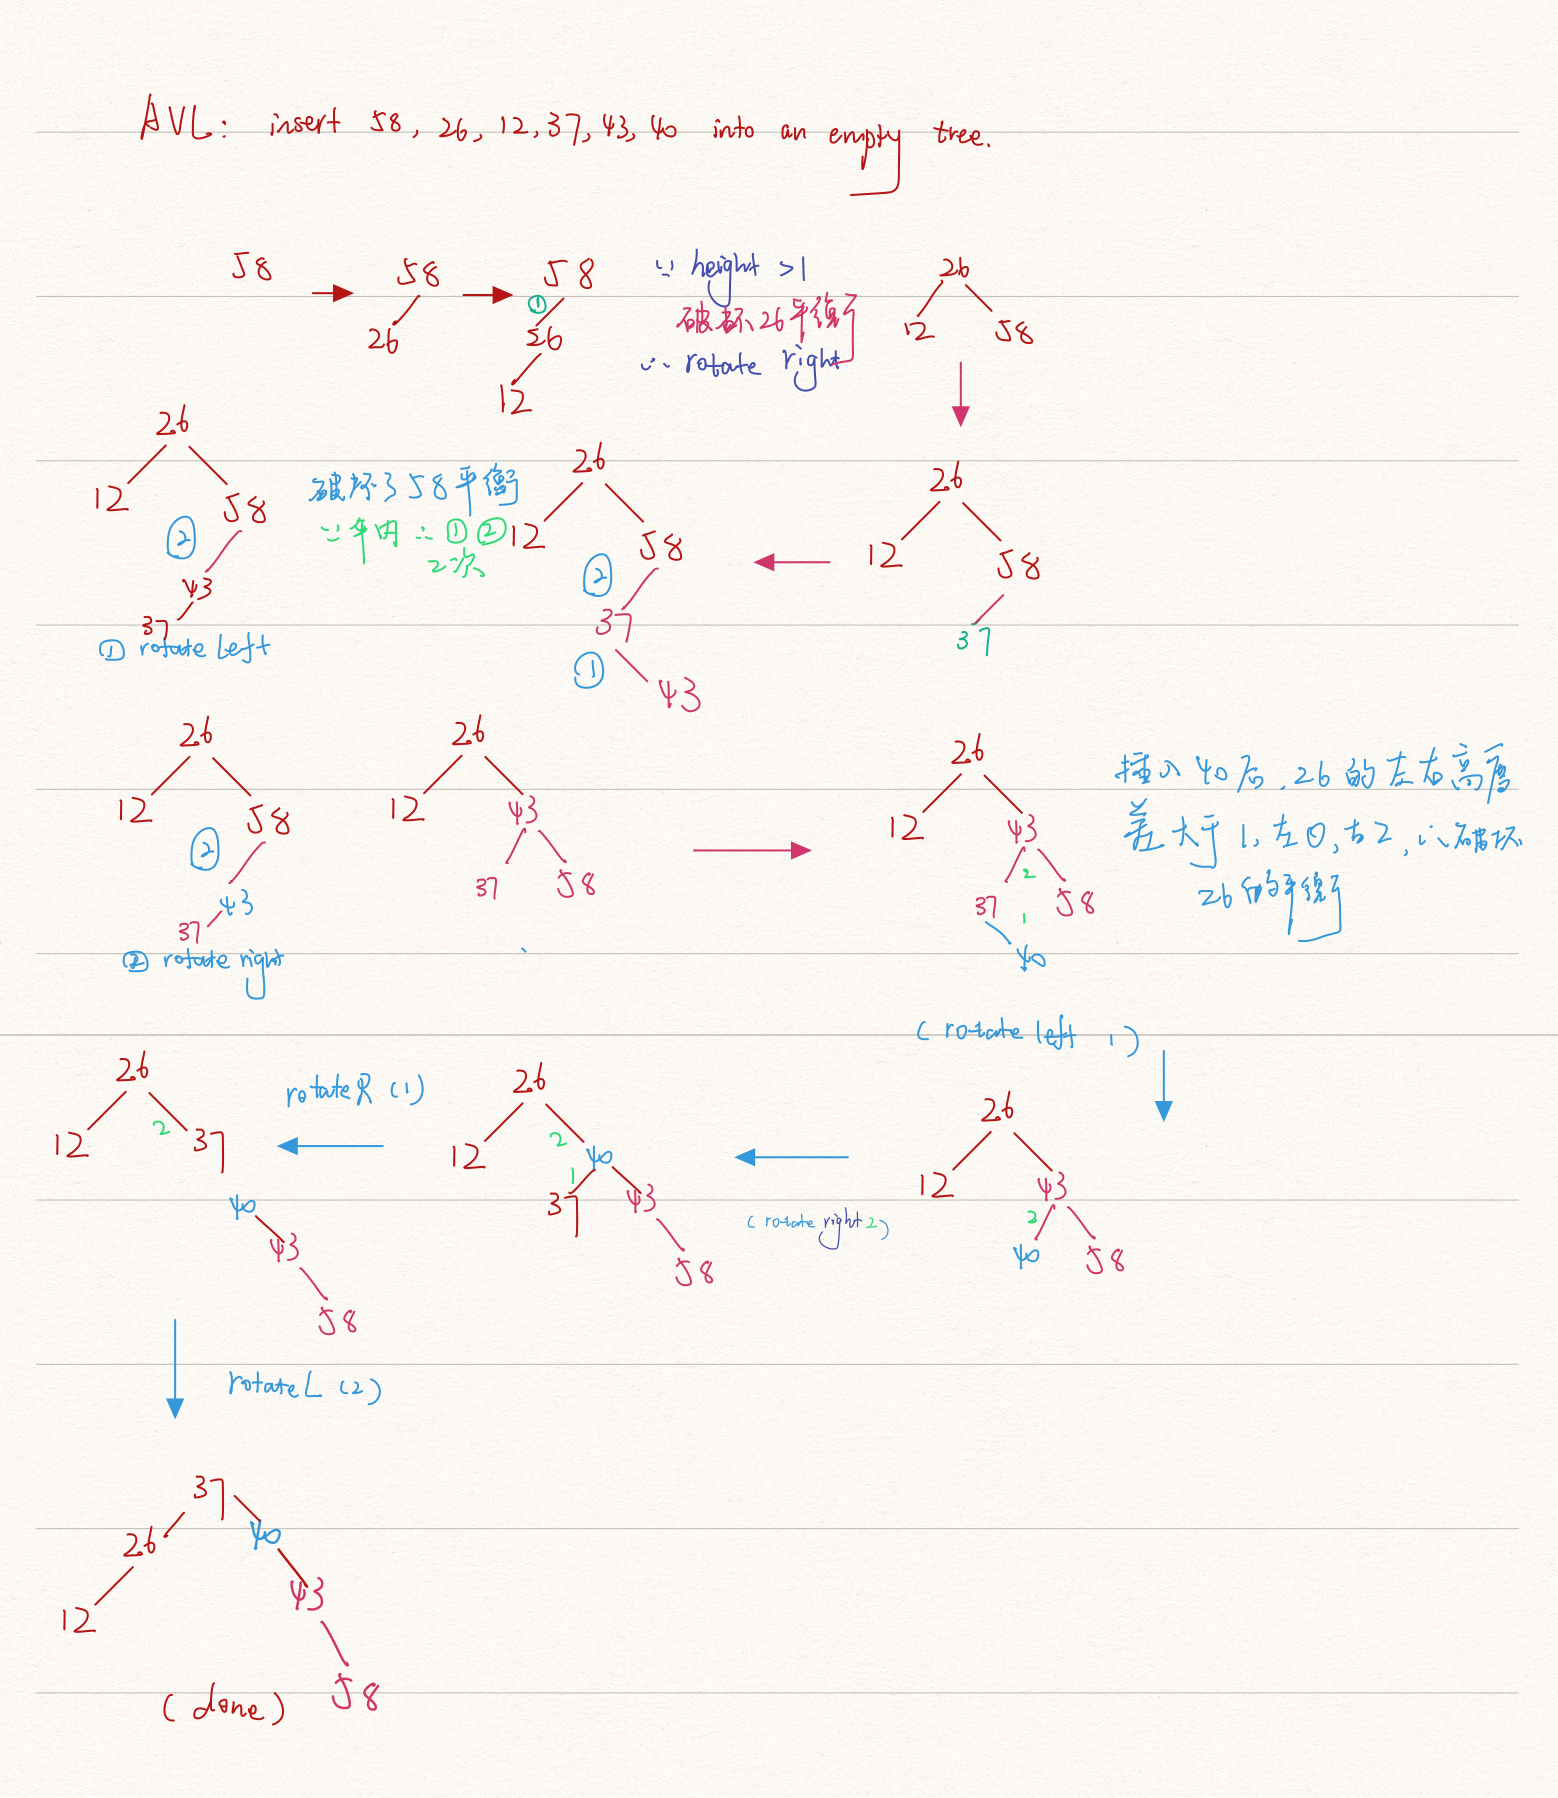 AVL: insert 58, 26, 12, 37, 43, 40 into an empty tree.
58
58
26
58
①
26
12
∵ height >1
破坏26平衡了
∴ rotate right
26
12 58
26
12 58
②
43
37
① rotate left
破坏了58平衡
∴ ① ②
2次
26
12 58
②
37
①
43
26
12 58
37
26
12 58
②
43
37
② rotate right
26
12 43
37 58
26
12 43
2
37 58
1
40
插入40后,26的左右高度
差大于1,左0,右2,∴破坏
26的平衡了
(rotate left 1)
26
12 2 37
40
43
58
rotateR (1)
26
2
12 40
1
37 43
58
(rotate right 2)
26
12 43
2
40 58
rotateL (2)
37
26 40
12 43
58
(done)